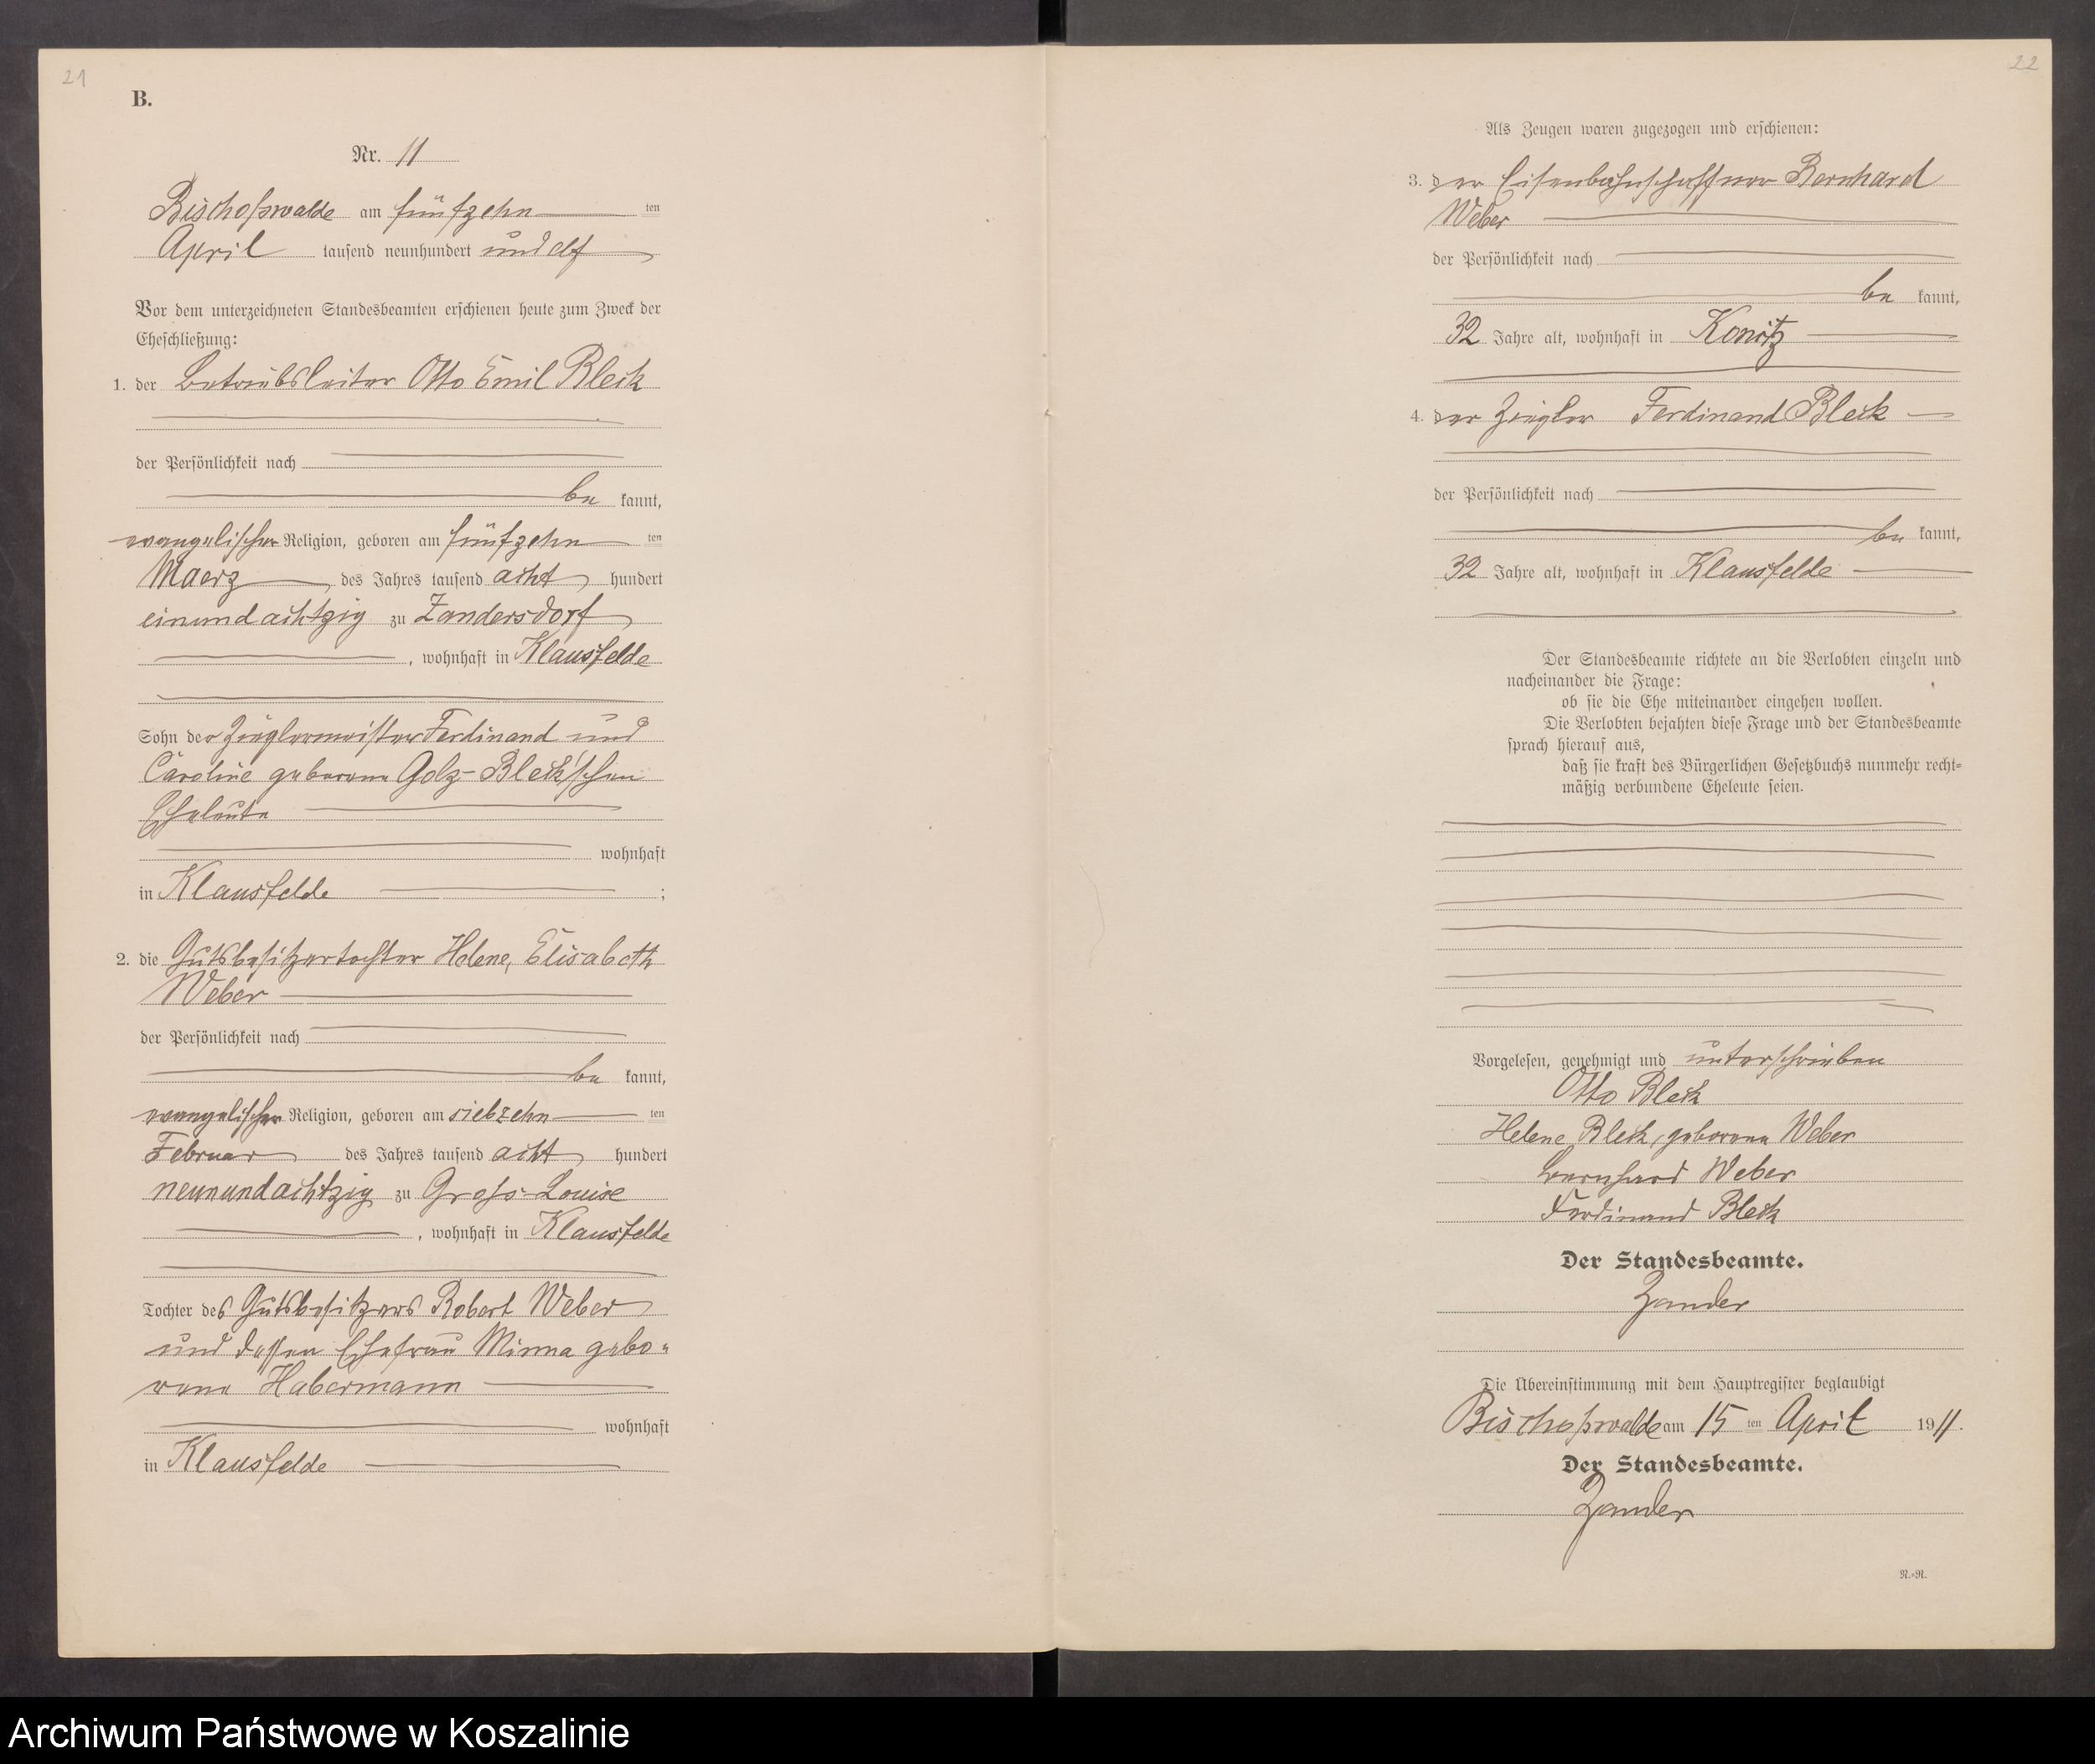 21
B.
Nr. 11
Bischofswalde am fünfzehn ten
April tausend neunhundert und elf
Vor dem unterzeichneten Standesbeamten erschienen heute zum Zweck der
Eheschließung:
1. der Betriebsleiter Otto Emil Bleck
der Persönlichkeit nach
be kannt,
evangelischer Religion, geboren am fünfzehn ten
Maerz des Jahres tausend acht hundert
einundachtzig zu Zandersdorf
, wohnhaft in Klausfelde
Sohn der Zieglermeister Ferdinand und
Caroline geborene Golz-Bleck'schen
Eheleute
wohnhaft
in Klausfelde ;
2. die Gutsbesitzertochter Helene, Elisabeth
Weber
der Persönlichkeit nach
be kannt,
evangelischer Religion, geboren am siebzehn ten
Februar des Jahres tausend acht hundert
neunundachtzig zu Gross-Louise
, wohnhaft in Klausfelde
Tochter des Gutsbesitzers Robert Weber
und dessen Ehefrau Minna gebo-
rene Habermann
wohnhaft
in Klausfelde
22
Als Zeugen waren zugezogen und erschienen:
3. der Eisenbahnschaffner Bernhard
Weber
der Persönlichkeit nach
be kannt,
32 Jahre alt, wohnhaft in Konitz
4. der Ziegler Ferdinand Bleck
der Persönlichkeit nach
be kannt,
32 Jahre alt, wohnhaft in Klausfelde
Der Standesbeamte richtete an die Verlobten einzeln und
nacheinander die Frage:
ob sie die Ehe miteinander eingehen wollen.
Die Verlobten bejahten diese Frage und der Standesbeamte
sprach hierauf aus,
daß sie kraft des Bürgerlichen Gesetzbuchs nunmehr recht-
mäßig verbundene Eheleute seien.
Vorgelesen, genehmigt und unterschrieben
Otto Bleck
Helene Bleck, geborene Weber
Bernhard Weber
Ferdinand Bleck
Der Standesbeamte.
Zander
Die Übereinstimmung mit dem Hauptregister beglaubigt
Bischofswalde am 15 ten April 1911.
Der Standesbeamte.
Zander
N.-N.
Archiwum Państwowe w Koszalinie